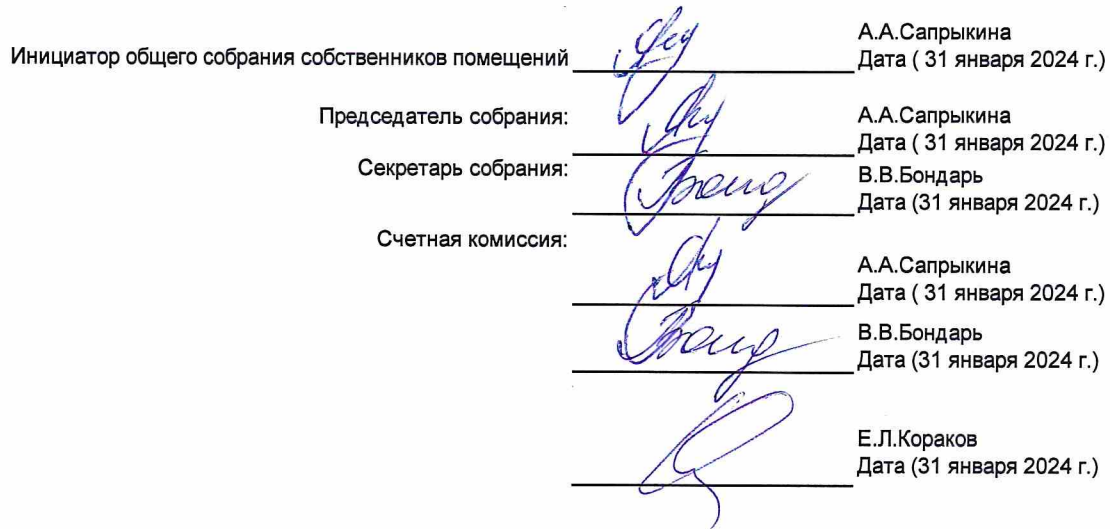 А.А.Сапрыкина
Инициатор общего собрания собственников помещений Дата ( 31 января 2024 г.)
Председатель собрания: А.А.Сапрыкина
Дата ( 31 января 2024 г.)
Секретарь собрания: В.В.Бондарь
Дата (31 января 2024 г.)
Счетная комиссия:
А.А.Сапрыкина
Дата ( 31 января 2024 г.)
В.В.Бондарь
Дата (31 января 2024 г.)
Е.Л.Кораков
Дата (31 января 2024 г.)